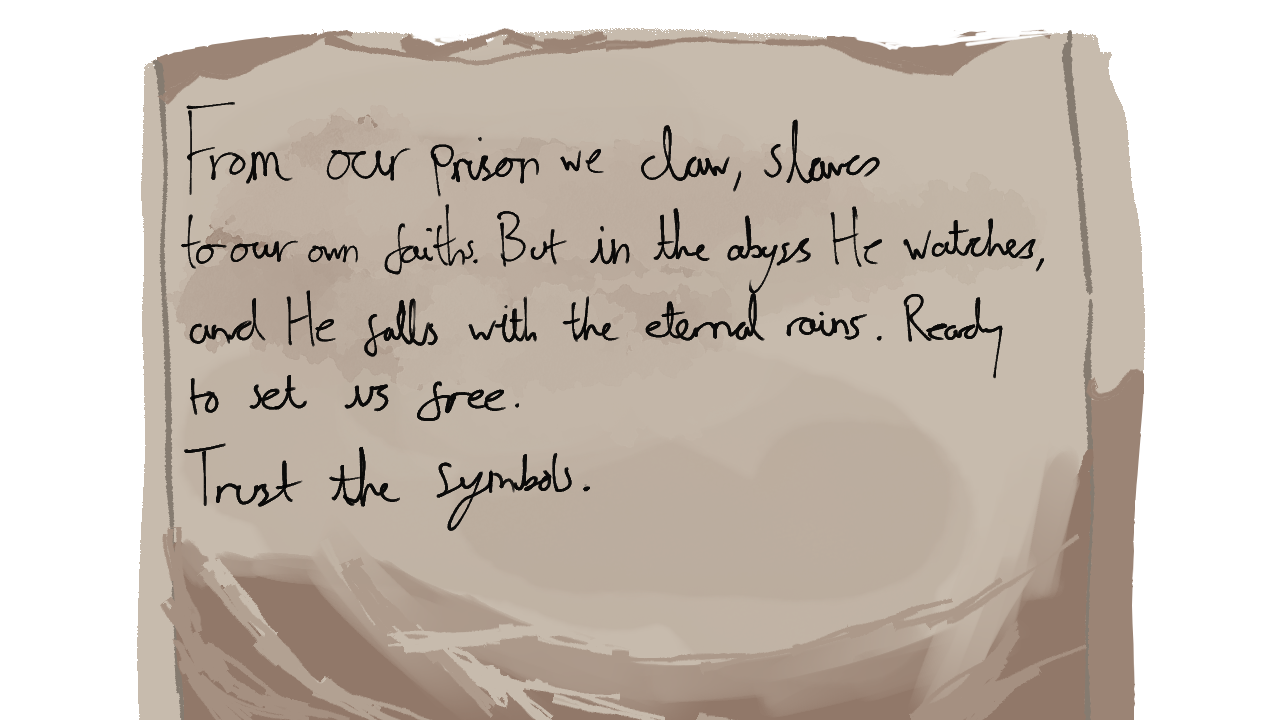 From our prison we claw, slaves
to our own faiths. But in the abyss He watches,
and He falls with the eternal rains. Ready
to set us free.
Trust the symbols.